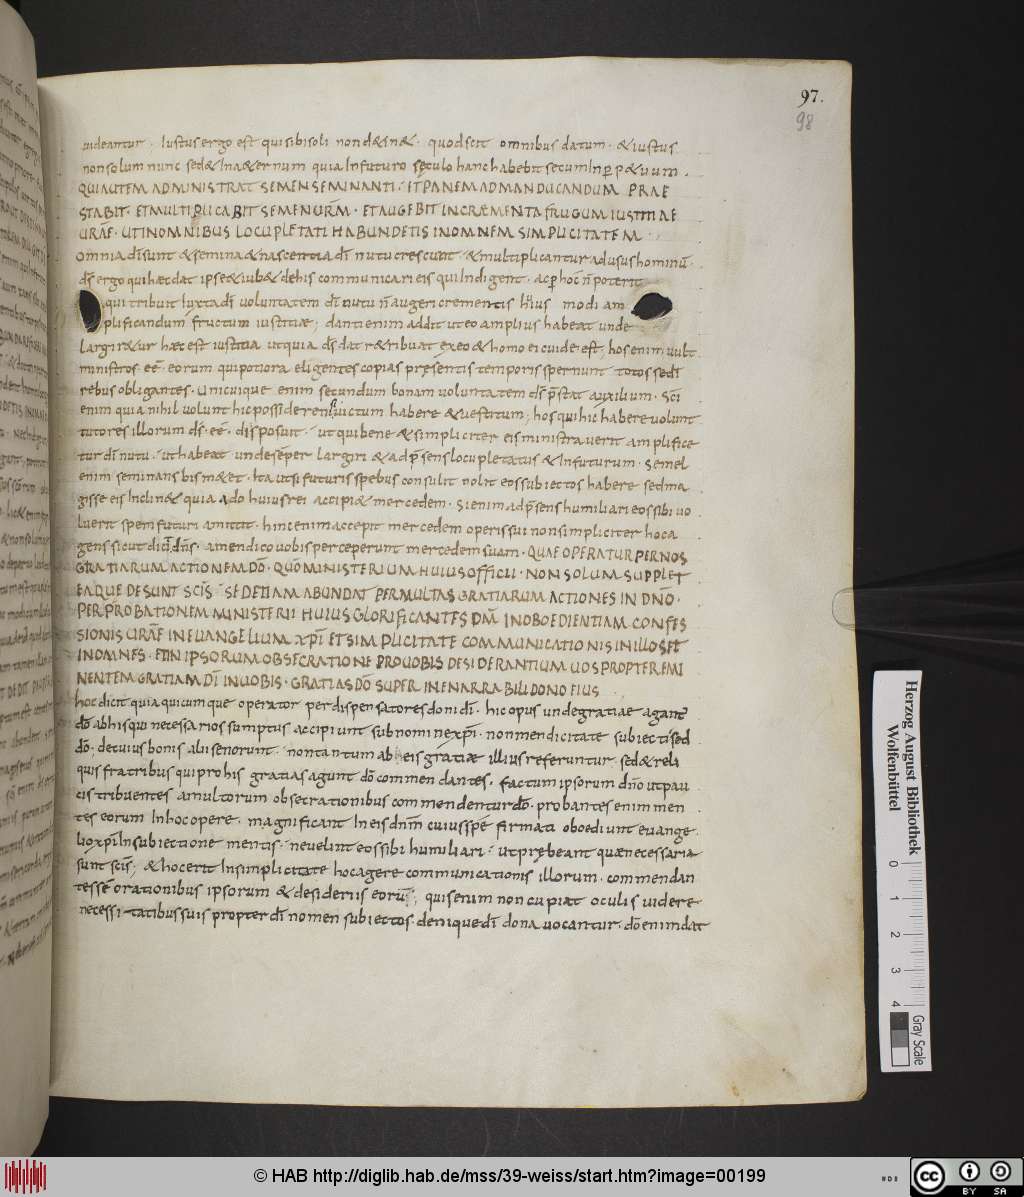 97.
98
uideantur · Iustus ergo est qui sibi soli non d&in& · quod scit omnibus datum · & iustus
non solum nunc sed & Ina&ernum quia Infuturo seculo hanc habebit secum
QUIAUTEM ADMINISTRAT SEMEN SEMINANTI · ET PANEM AD MANDUCANDUM PRAE
STABIT · ET MULTIPLICABIT SEMEN URM · ET AUGEBIT INCREMENTA FRUGUM IUSTITIAE
URAE · UTINOMNIBUS LOCUPLETATI HABUNDETIS INOMNEM SIMPLICITATEM ·
omnia dī sunt & semina & nascentia dī nutu crescunt · & multiplicantur ad usus hominū ·
ds ergo qui haec dat ipse & iub& de his communicari eis qui Indigent · ac n poterit
qui tribuit Iuxta dī voluntatem dī nutu n augeri crementis huius modi am
plificandum fructum iustitiae ; danti enim addit ut eo amplius habeat unde
largir&ur haec est iustitia ut quia ds dat r&ribuat ex eo & homo ei cui de est ; hos enim uult
ministros eē · eorum qui potiora eligentes copias presentis temporis spernunt totos se dī
rebus obligantes · unicuique enim secundum bonam voluntatem ds pstat auxilium · Sci
enim quia nihil volunt hic possidere nisi uictum habere & uestitum ; hos qui hic habere volunt
tutores illorum ds · eē · disposuit · ut qui bene & simpliciter eis ministraverit amplifice
tur dī nutu · ut habeat unde semper largiri & ad psens locupletatus & Infuturum · Semel
enim seminans bis m&et · Ita ut si futuris spebus consulit nolit eos subiectos habere sed ma
gis se eis Inclin& quia ado huius rei accipi& mercedem · Si enim ad psens humiliari eos sibi uo
luerit spem futuri amittit · hinc enim accepit mercedem operis sui non simpliciter hoc a
gens sicut dicit dns · amen dico vobis perceperunt mercedem suam · QUAE OPERATUR PER NOS
GRATIARUM ACTIONEM DŌ · QUŌ MINISTERIUM HUIUS OFFICII · NON SOLUM SUPPLET
EA QUE DESUNT SCIS · SED ETIAM ABUNDAT PER MULTAS GRATIARUM ACTIONES IN DNŌ ·
PER PROBATIONEM MINISTERII HUIUS GLORIFICANTES DM INOBOEDIENTIAM CONFES
SIONIS URAE IN EUANGELIUM XPI ET SIMPLICITATE COMMUNICATIONIS IN ILLOS ET
IN OMNES · ET IN IPSORUM OBSECRATIONE PRO UOBIS DESIDERANTIUM UOS PROPTER EMI
NENTEM GRATIAM DĪ IN UOBIS · GRATIAS DŌ SUPER INENARRABILI DONO EIUS
hoc dicit quia quicumque operator per dispensatores doni dī · hic opus unde gratiae agant
dō ab his qui necessarios sumptus accipiunt sub nomine xpi · non mendicitate subiecti sed
dō · de cuius bonis aluise norunt · non tantum ab eis gratiae illius referuntur sed & reli
quis fratribus qui pro his gratias agunt dō commendantes · factum ipsorum dno ut pau
cis tribuentes a multorum obsecrationibus commendentur dō · probantes enim men
tes eorum In hoc opere · magnificant In eis dnm cuius spe firmati oboediunt euange
lio xpi In subiectione mentis · ne uelint eos sibi humiliari · ut prebeant quae necessaria
sunt scis ; & hoc erit In simplicitate hoc agere communicationis illorum · commendan
tes se orationibus ipsorum & desideriis eorū · qui se enim non cupiat oculis videre
necessitatibus suis propter dī nomen subiectos · denique dī dona vocantur · dō enim dat
Herzog August Bibliothek
Wolfenbüttel
0 1 2 3 4
Gray Scale
© HAB http://diglib.hab.de/mss/39-weiss/start.htm?image=00199
cc BY SA